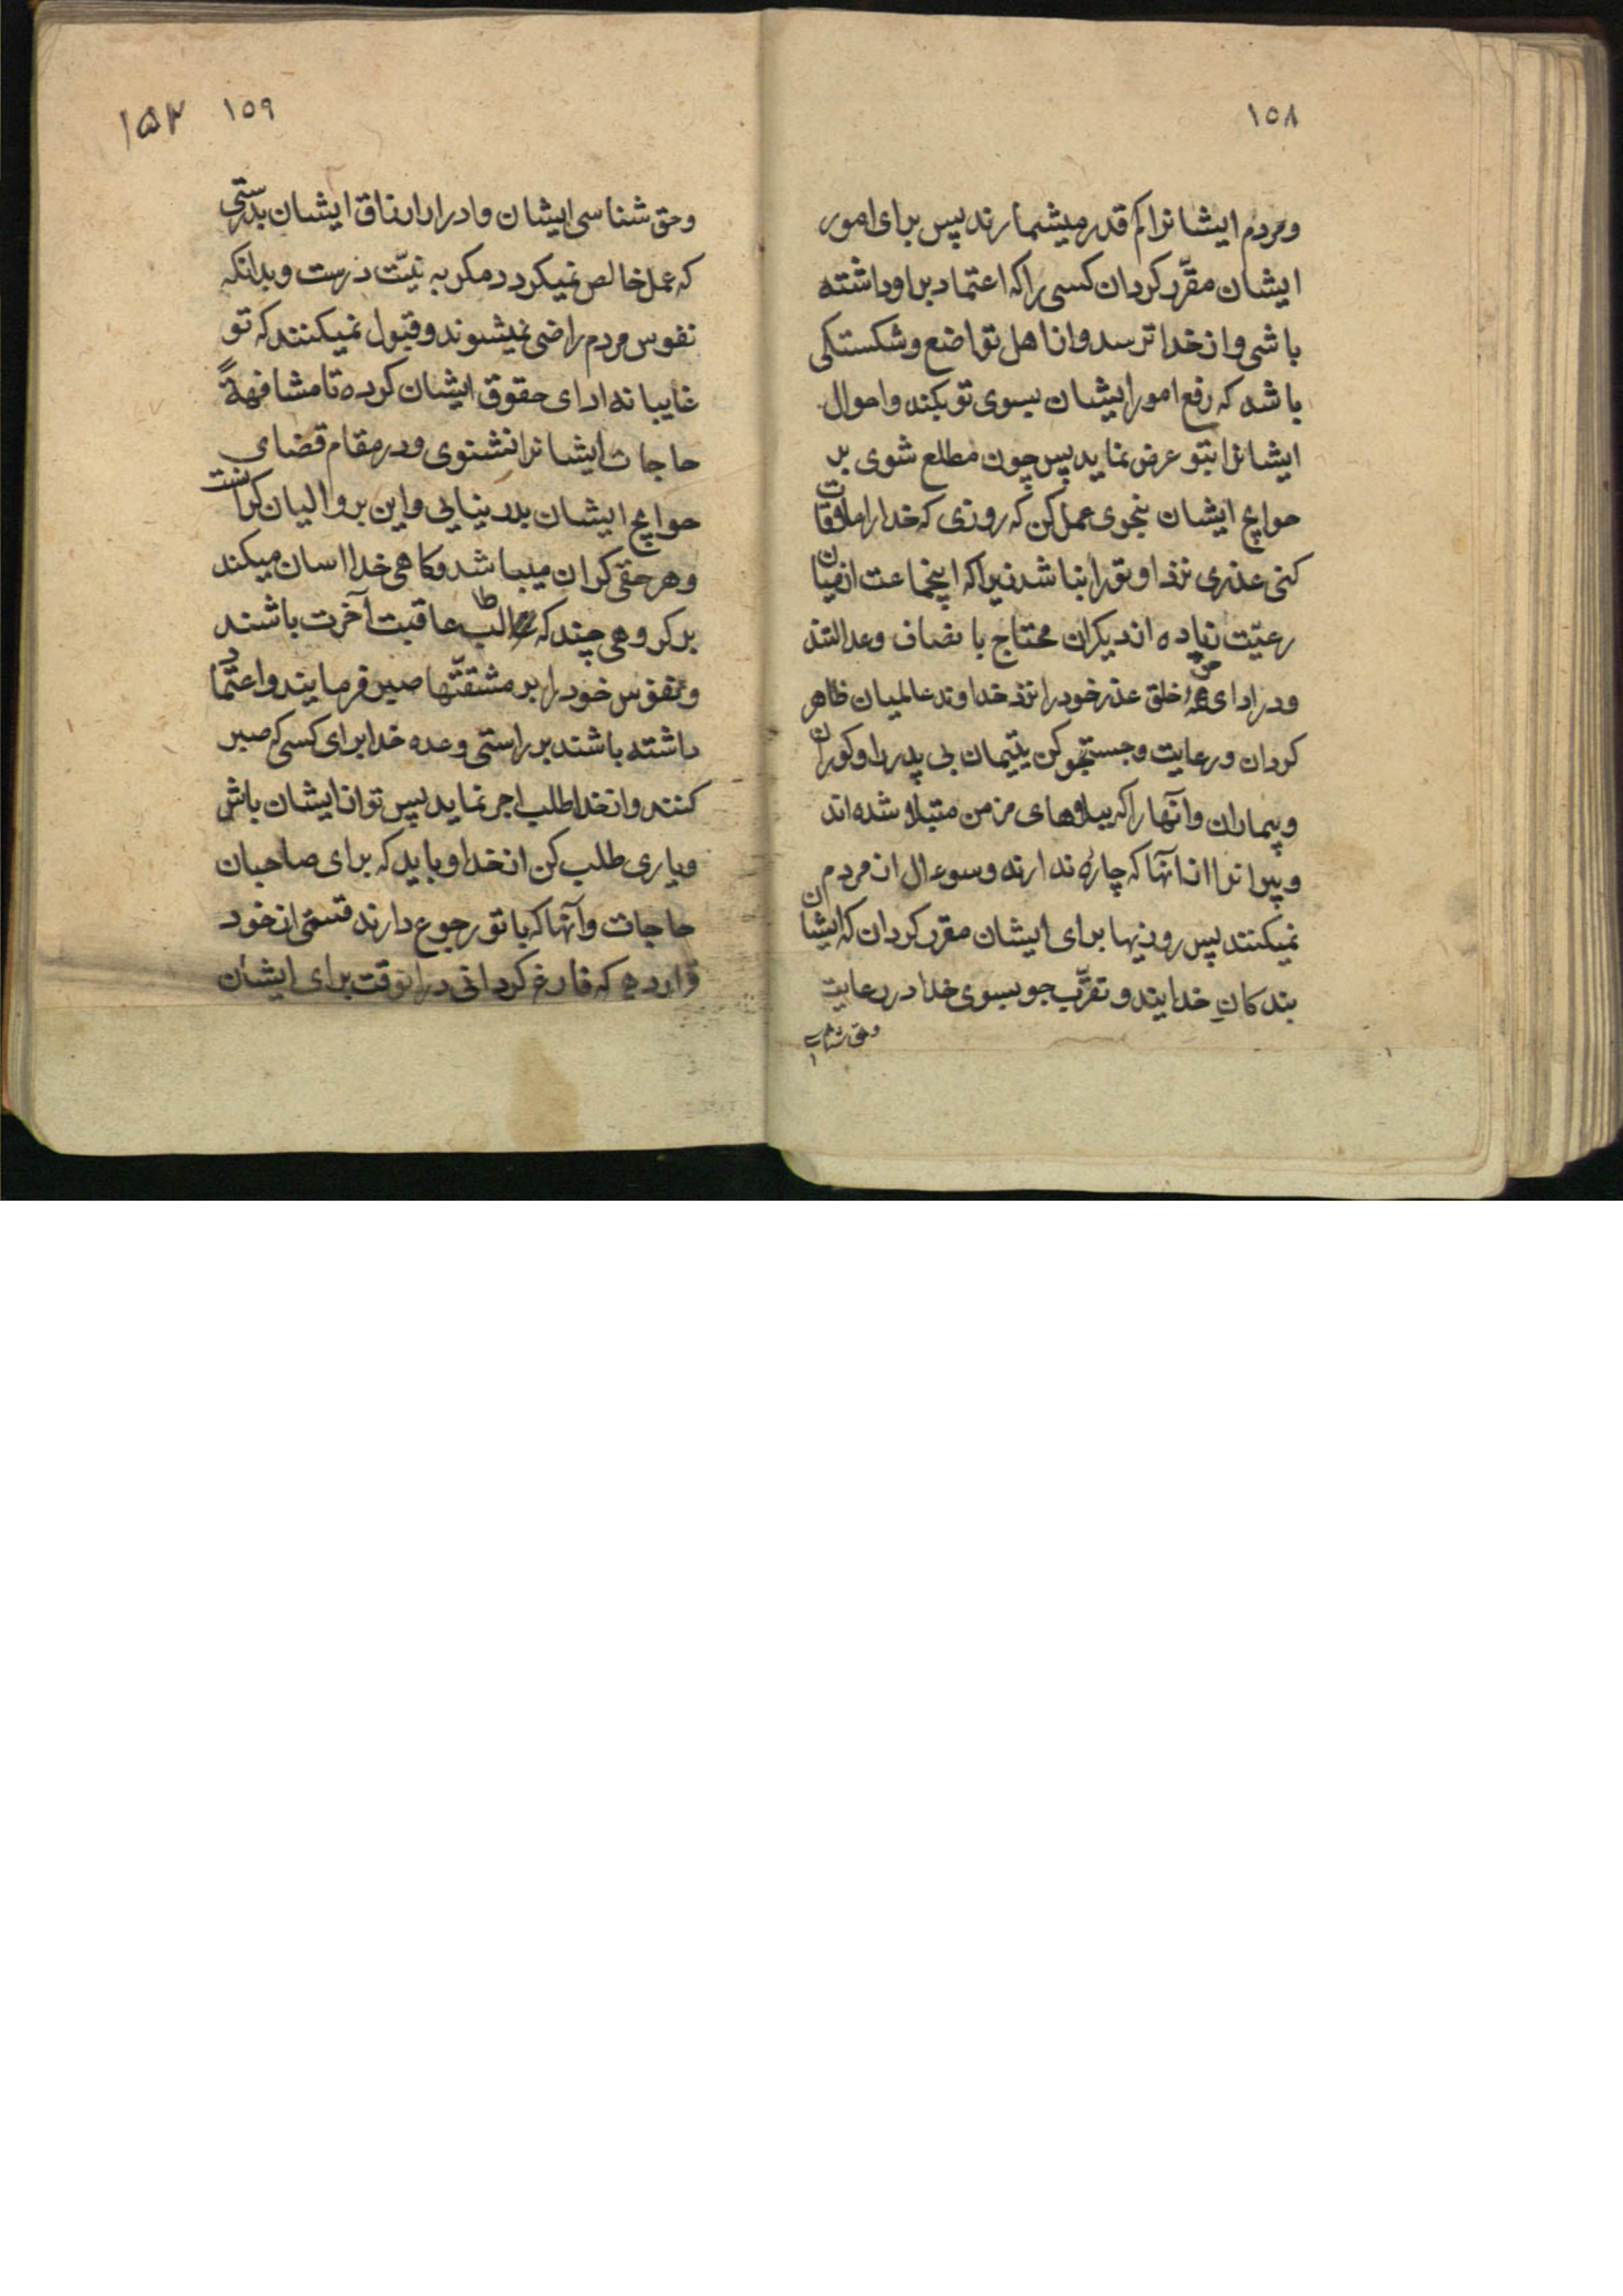 ١٥٨
ومردم ایشانرا کم قدر میشمارند پس برای امور
ایشان مقرّر کردان کسی را که اعتماد بر او داشته
باشی و از خدا ترسد و از اهل تواضع و شکستکی
باشد که رفع امور ایشان بسوی تو بکند و احوال
ایشانرا بتو عرض نماید پس چون مطلع شوی بر
حوایج ایشان بنحوی عمل کن که روزی که خدا را ملاقات
کنی عذری نزد او تو را بباشد زیرا که اینجماعت از میان
رعیّت زیاده از دیکران محتاج بانصاف و عدالتند
ودر ادای حق خلق عذر خود را نزد خداوند عالمیان ظاهر
کردان و رعایت و جستجو کن یتیمان بی پدر را و کوران
و بیماران و آنها را که ببلاهای مزمن مبتلا شده اند
و پیرانرا از آنها که چاره ندارند و سوءال از مردم
نمیکنند پس روزیها برای ایشان مقرر کردان که ایشان
بندکان خدایند و تقرّب جو بسوی خدا در رعایت
وحق شناسی
١٥٩ ۱۵۲
وحق شناسی ایشان و ادرار ارزاق ایشان بدرستی
که عمل خالص نمیکردد مکر به نیّت درست و بدانکه
نفوس مردم راضی نمیشوند و قبول نمیکنند که تو
غایبانه ادای حقوق ایشان کرده تا مشافهةً
حاجات ایشانرا نشنوی و در مقام قضای
حوایج ایشان بدر نیایی و این بر والیان کرانست
وهر حقی کران میباشد و کاهی خدا اسان میکند
بر کروهی چند که طالب عاقبت آخرت باشند
و نفوس خود را بر مشقتّها صبر فرمایند و اعتماد
داشته باشند بر راستی وعده خدا برای کسی که صبر
کنند و از خدا طلب اجر نماید پس تو از ایشان باش
و یاری طلب کن از خدا و باید که برای صاحبان
حاجات و آنها که با تو رجوع دارند قسمتی از خود
قرار دهی که فارغ کردانی در انوقت برای ایشان